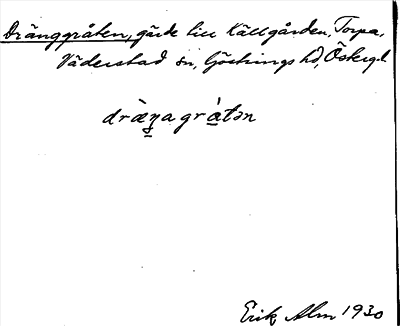 Dränggråten, gärde till Källgården, Torpa,
Väderstad sn, Göstrings hd, Österg.l.
dræ̀ŋagrá̱tən
Erik Alm 1930